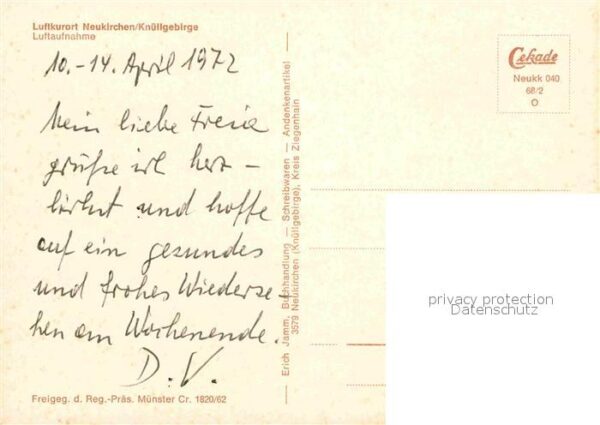 Luftkurort Neukirchen/Knüllgebirge
Luftaufnahme
10.-14. April 1972
Mein liebe
grüße ich herz-
lichst und hoffe
auf ein gesundes
und frohes Wiederse-
hen am Wochenende.
D.V.
Freigeg. d. Reg.-Präs. Münster Cr. 1820/62
Erich Jamm, Buchhandlung — Schreibwaren — Andenkenartikel
3579 Neukirchen (Knüllgebirge), Kreis Ziegenhain
Cekade
Neukk 040
68/2
O
privacy protection
Datenschutz